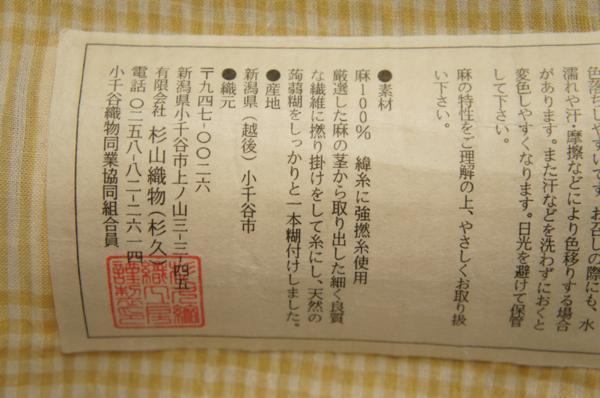 色落ちしやすいです。お召しの際にも、水
濡れや汗・摩擦などにより色移りする場合
があります。また汗などを洗わずにおくと
変色しやすくなります。日光を避けて保管
して下さい。
麻の特性をご理解の上、やさしくお取り扱
い下さい。
●素材
麻100% 緯糸に強撚糸使用
厳選した麻の茎から取り出した細く良質
な繊維に撚り掛けをして糸にし、天然の
蒟蒻糊をしっかりと一本糊付けしました。
●産地
新潟県(越後)小千谷市
●織元
〒九四七-〇〇二六
新潟県小千谷市上ノ山三-三-四五
有限会社 杉山織物(杉久)
電話 〇二五八-八二-二六一四
小千谷織物同業協同組合員